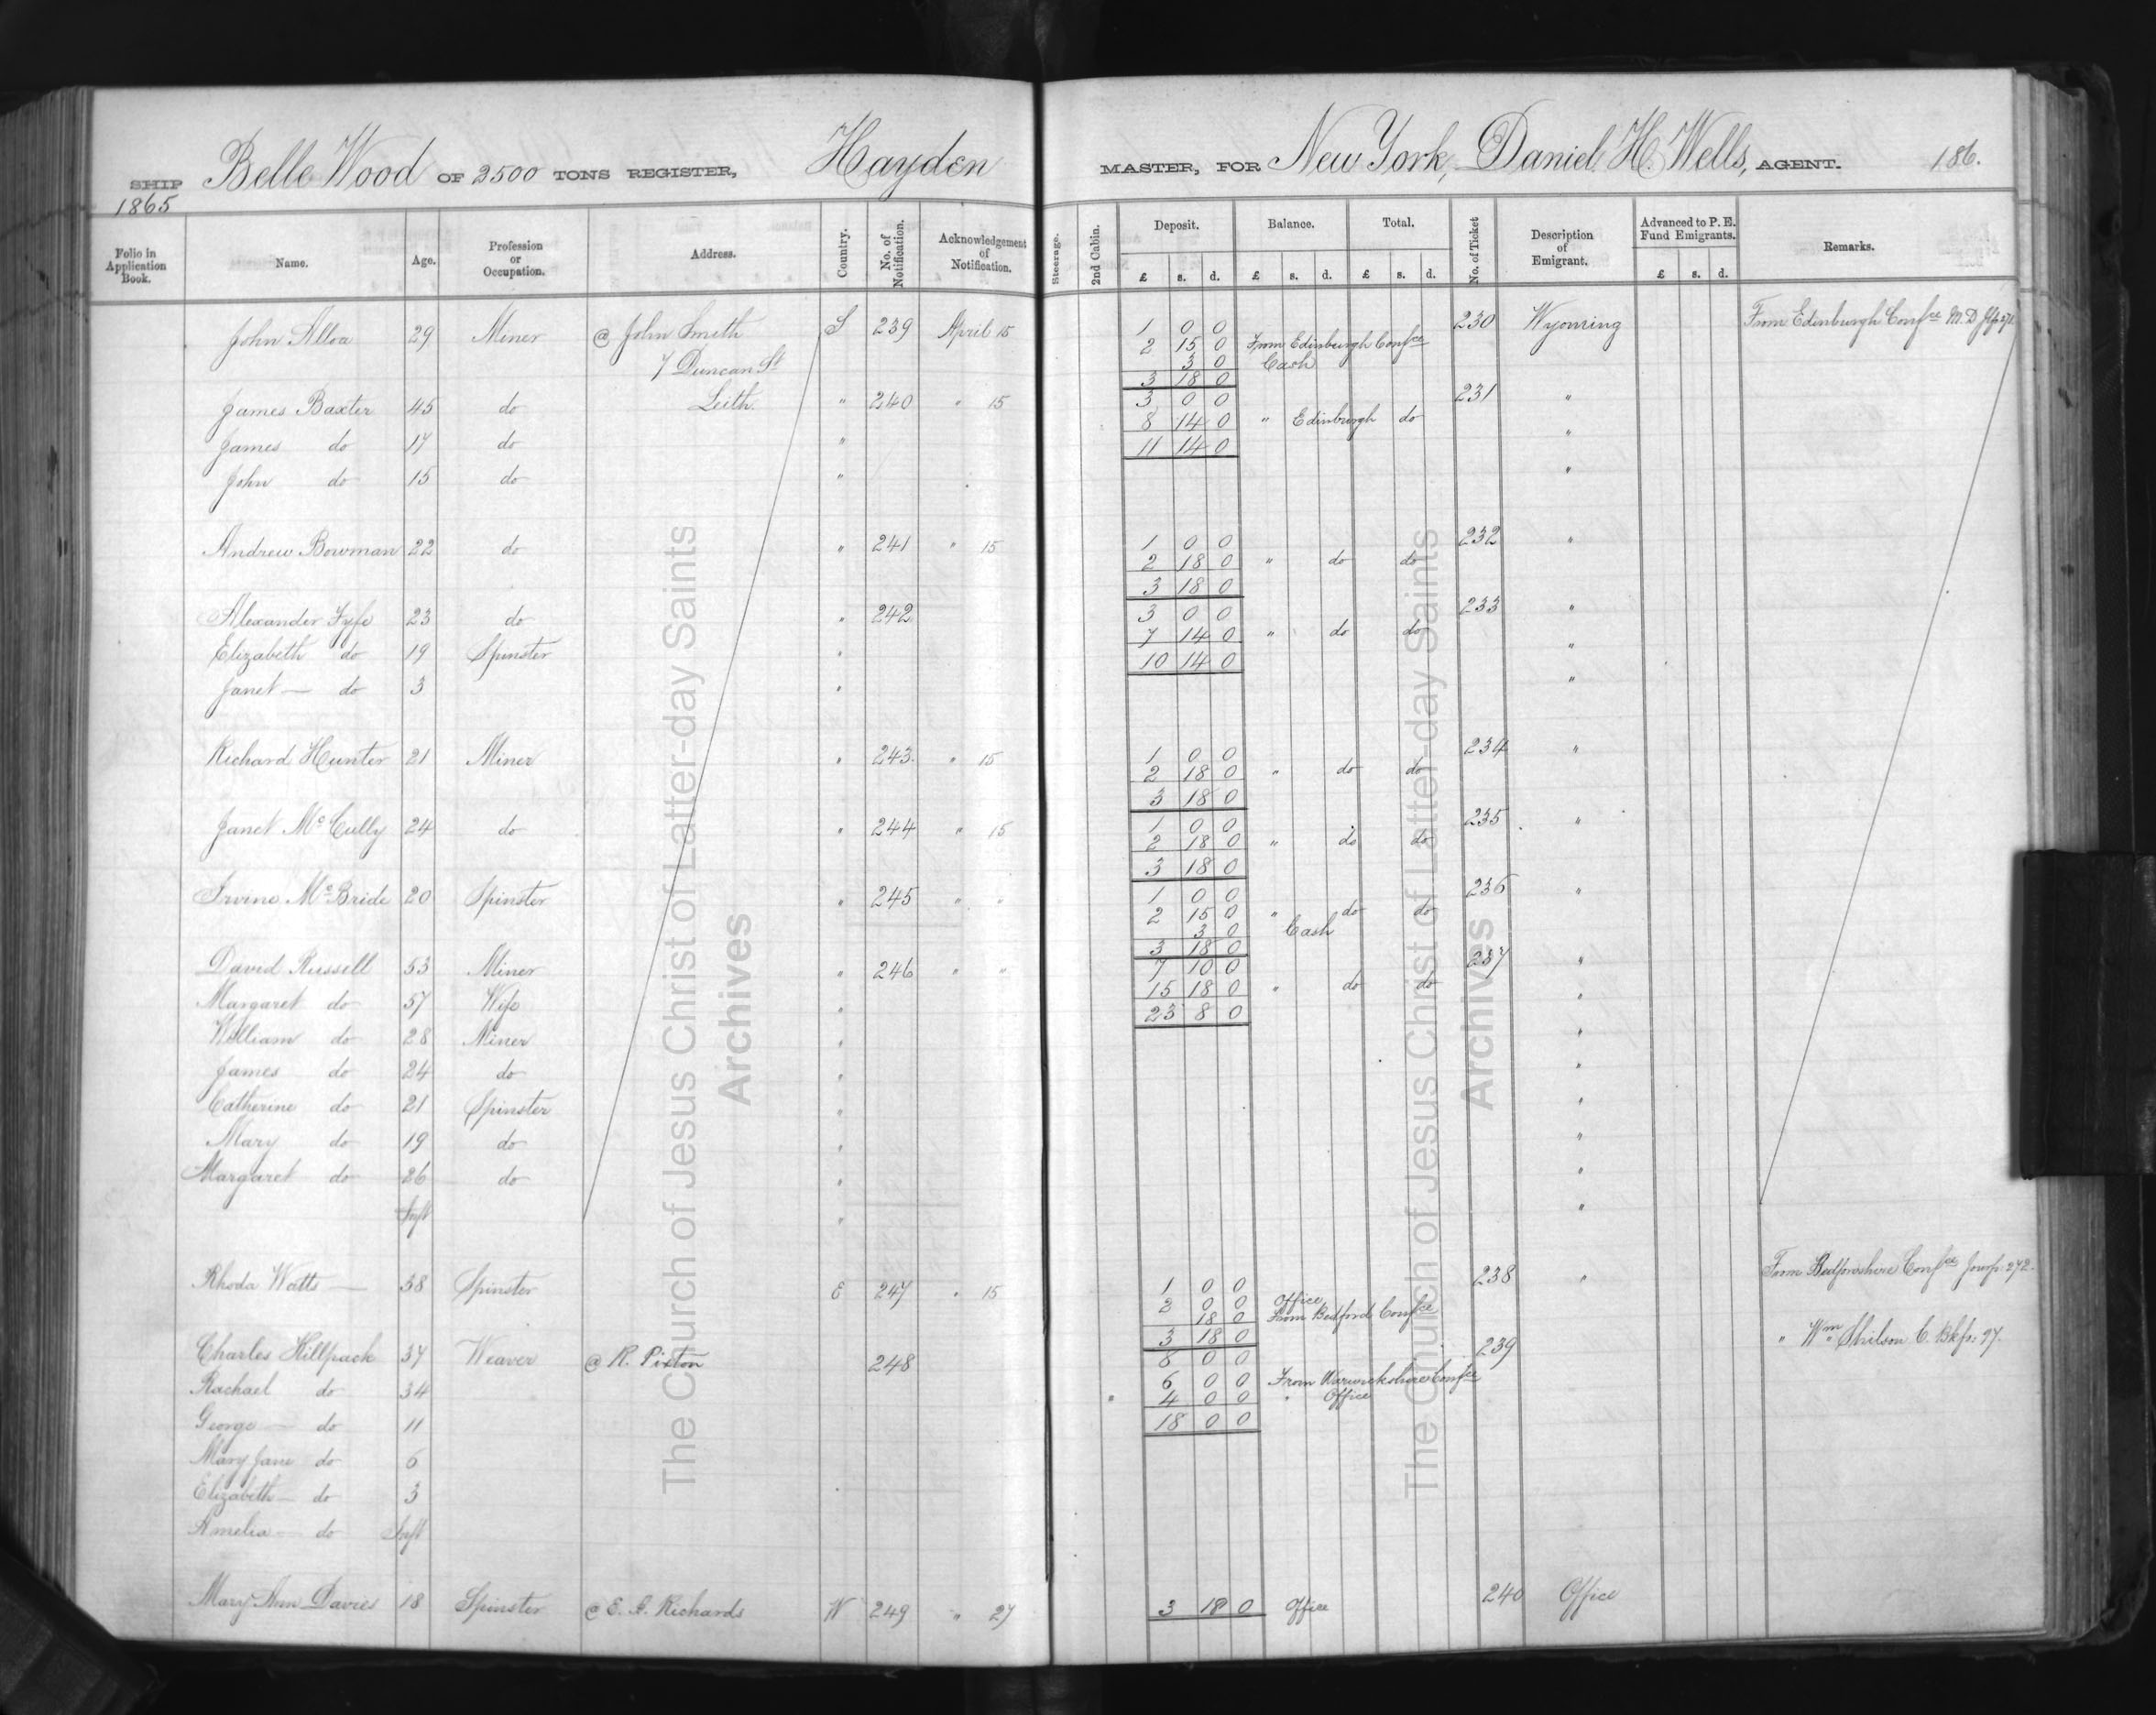 SHIP Belle Wood OF 2500 TONS REGISTER, Hayden MASTER, FOR New York, Daniel H. Wells, AGENT. 186.
1865
Folio in Application Book. Name. Age. Profession or Occupation. Address. Country. No. of Notification. Acknowledgement of Notification. Steerage. 2nd Cabin. Deposit. Balance. Total. No. of Ticket Description of Emigrant. Advanced to P. E. Fund Emigrants. Remarks.
£ s. d. £ s. d. £ s. d. £ s. d.
John Alloa 29 Miner @ John Smith S 239 April 15 1 0 0 230 Wyoming From Edinburgh Confce
2 15 0 From Edinburgh Confce
7 Duncan St 3 0 Cash
3 18 0
James Baxter 45 do Leith. " 240 " 15 3 0 0 231 "
8 14 0 " Edinburgh do
James do 17 do " 11 14 0 "
John do 15 do " "
Andrew Bowman 22 do " 241 " 15 1 0 0 232 "
2 18 0 " do do
3 18 0
Alexander Fyfe 23 do " 242 3 0 0 233 "
7 14 0 " do do
Elizabeth do 19 Spinster " 10 14 0 "
Janet — do 3 " "
Richard Hunter 21 Miner " 243. " 15 1 0 0 234 "
2 18 0 " do do
3 18 0
Janet Mc Cully 24 do " 244 " 15 1 0 0 235 "
2 18 0 " do do
3 18 0
Irvine McBride 20 Spinster " 245 " " 1 0 0 236 "
2 15 0 " do do
3 0 Cash
3 18 0
David Russell 53 Miner " 246 " " 7 10 0 237 "
15 18 0 " do do
Margaret do 57 Wife " 23 8 0 "
William do 28 Miner " "
James do 24 do " "
Catherine do 21 Spinster " "
Mary do 19 do " "
Margaret do 26 do " "
Inft " "
Rhoda Watts — 38 Spinster E 247 " 15 1 0 0 238 " From Bedfordshire Confce
2 0 0 Office
18 0 From Bedford Confce
3 18 0
Charles Hillpack 37 Weaver @ R. Pixton 248 8 0 0 239 " Wm Shilson
6 0 0 From Warwickshire Confce
Rachael do 34 " 4 0 0 " Office
George — do 11 18 0 0
Mary Jane do 6
Elizabeth — do 3
Amelia — do Inft
Mary Ann Davies 18 Spinster @ E. G. Richards W 249 " 27 3 18 0 Office 240 Office
The Church of Jesus Christ of Latter-day Saints
Archives
The Church of Jesus Christ of Latter-day Saints
Archives